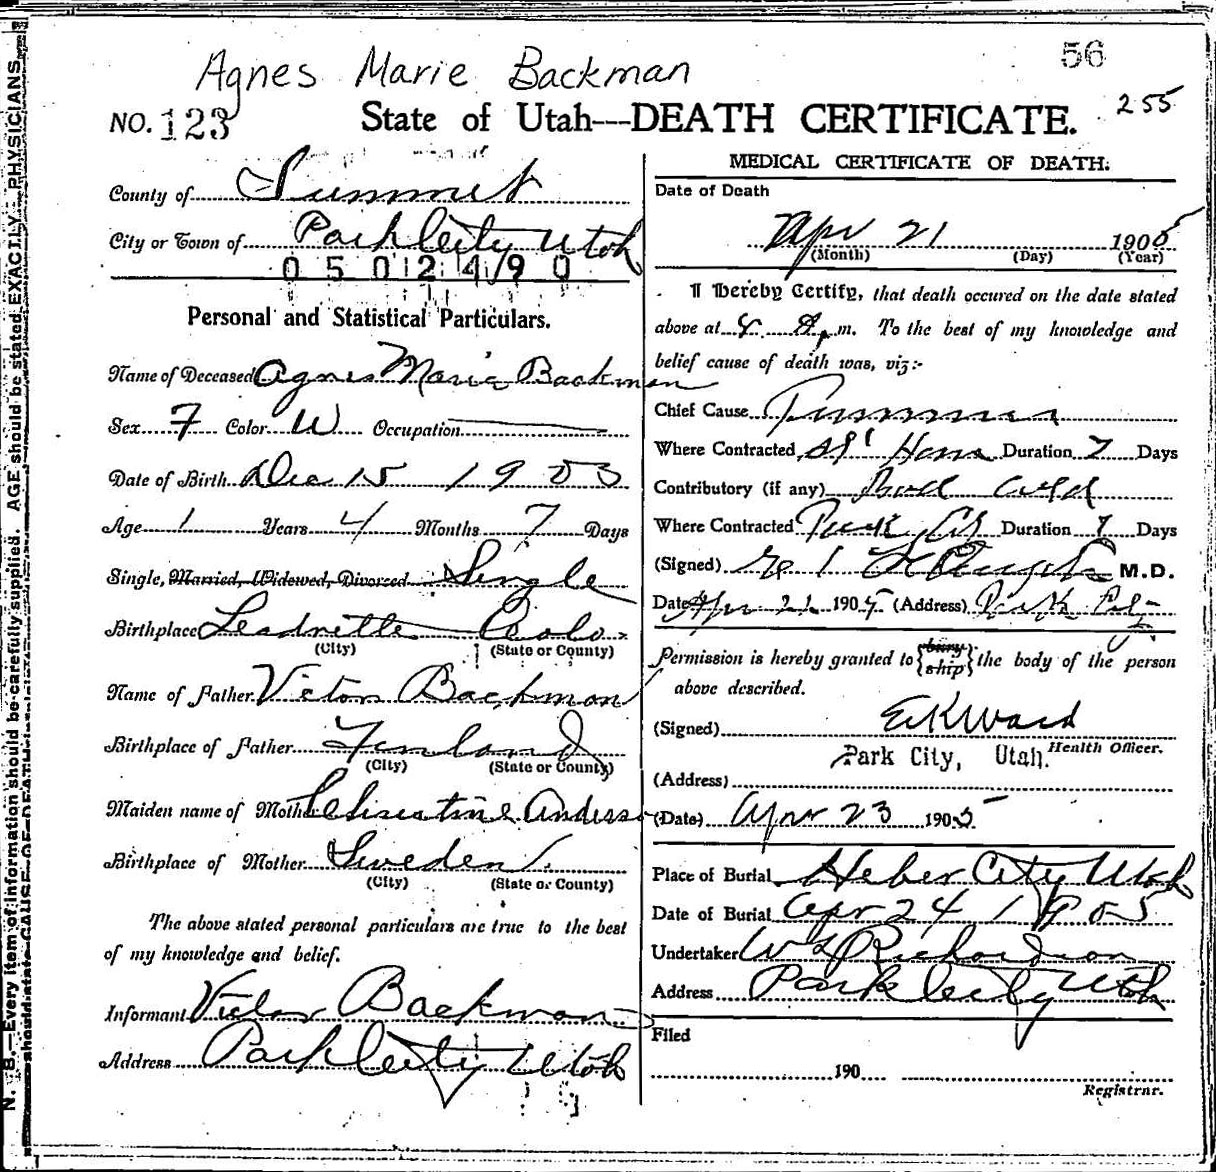 56
Agnes Marie Backman
255
NO. 123 State of Utah---DEATH CERTIFICATE.
N. B.—Every item of information should be carefully supplied. AGE should be stated EXACTLY. PHYSICIANS
should state CAUSE OF DEATH
County of Summit
City or Town of Park City Utah
0502490
Personal and Statistical Particulars.
Name of Deceased Agnes Marie Backman
Sex F Color W Occupation
Date of Birth Dec 15 1903
Age 1 Years 4 Months 7 Days
Single, Married, Widowed, Divorced Single
Birthplace Leadville Colo.
(City) (State or County)
Name of Father Victor Backman
Birthplace of Father Finland
(City) (State or County)
Maiden name of Mother Christine Anderson
Birthplace of Mother Sweden
(City) (State or County)
The above stated personal particulars are true to the best
of my knowledge and belief.
Informant Victor Backman
Address Park City Utah
MEDICAL CERTIFICATE OF DEATH.
Date of Death
Apr 21 1905
(Month) (Day) (Year)
I Hereby Certify, that death occured on the date stated
above at m. To the best of my knowledge and
belief cause of death was, viz:-
Chief Cause
Where Contracted at Home Duration 7 Days
Contributory (if any) Bad Cold
Where Contracted Park City Duration 7 Days
(Signed) M.D.
Date Apr 22 1905 (Address) Park City
Permission is hereby granted to {bury ship} the body of the person
above described.
(Signed) E K Ward
Health Officer.
Park City, Utah.
(Address)
(Date) Apr 23 1905
Place of Burial Heber City Utah
Date of Burial Apr 24 1905
Undertaker W Richardson
Address Park City Utah
Filed
190
Registrar.